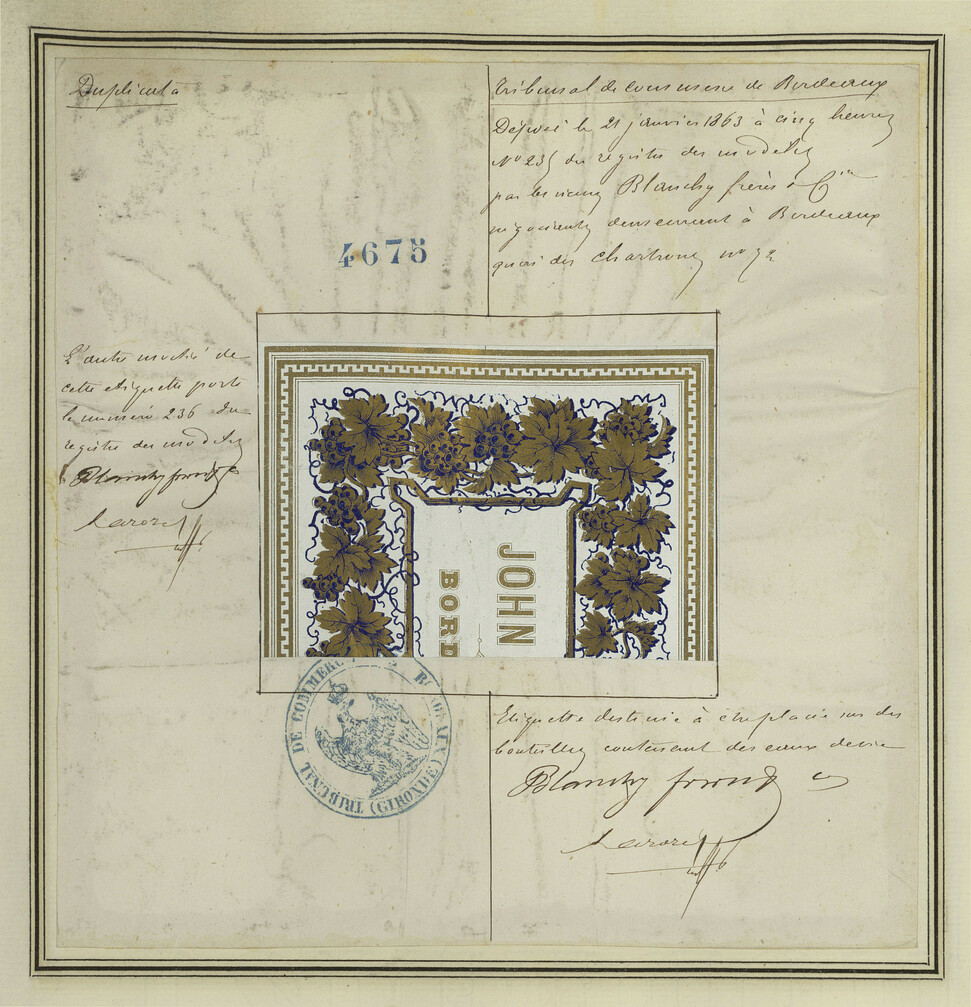 Duplicata
Tribunal de Commerce de Bordeaux
Déposé le 21 janvier 1863 à cinq heures
N° 235 du registre des modèles
par les sieurs Blanchy frères & Cie
négociants demeurant à Bordeaux
quai des Chartrons n°
4675
L'autre moitié de
cette étiquette porte
le numéro 236 du
registre des modèles
Blanchy frères
JOHN
BORD
TRIBUNAL DE COMMERCE BORDEAUX (GIRONDE)
Etiquette destinée à être placée sur des
bouteilles contenant des eaux de vie
Blanchy frères